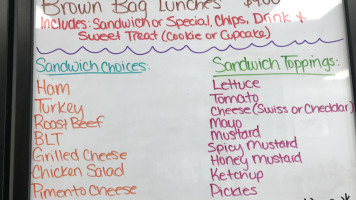 Brown Bag Lunches
Includes: Sandwich or Special, Chips, Drink +
Sweet Treat (Cookie or Cupcake)
Sandwich Choices:
Ham
Turkey
Roast Beef
BLT
Grilled Cheese
Chicken Salad
Pimento Cheese
Sandwich Toppings:
Lettuce
Tomato
Cheese (Swiss or Cheddar)
Mayo
Mustard
Spicy Mustard
Honey Mustard
Ketchup
Pickles